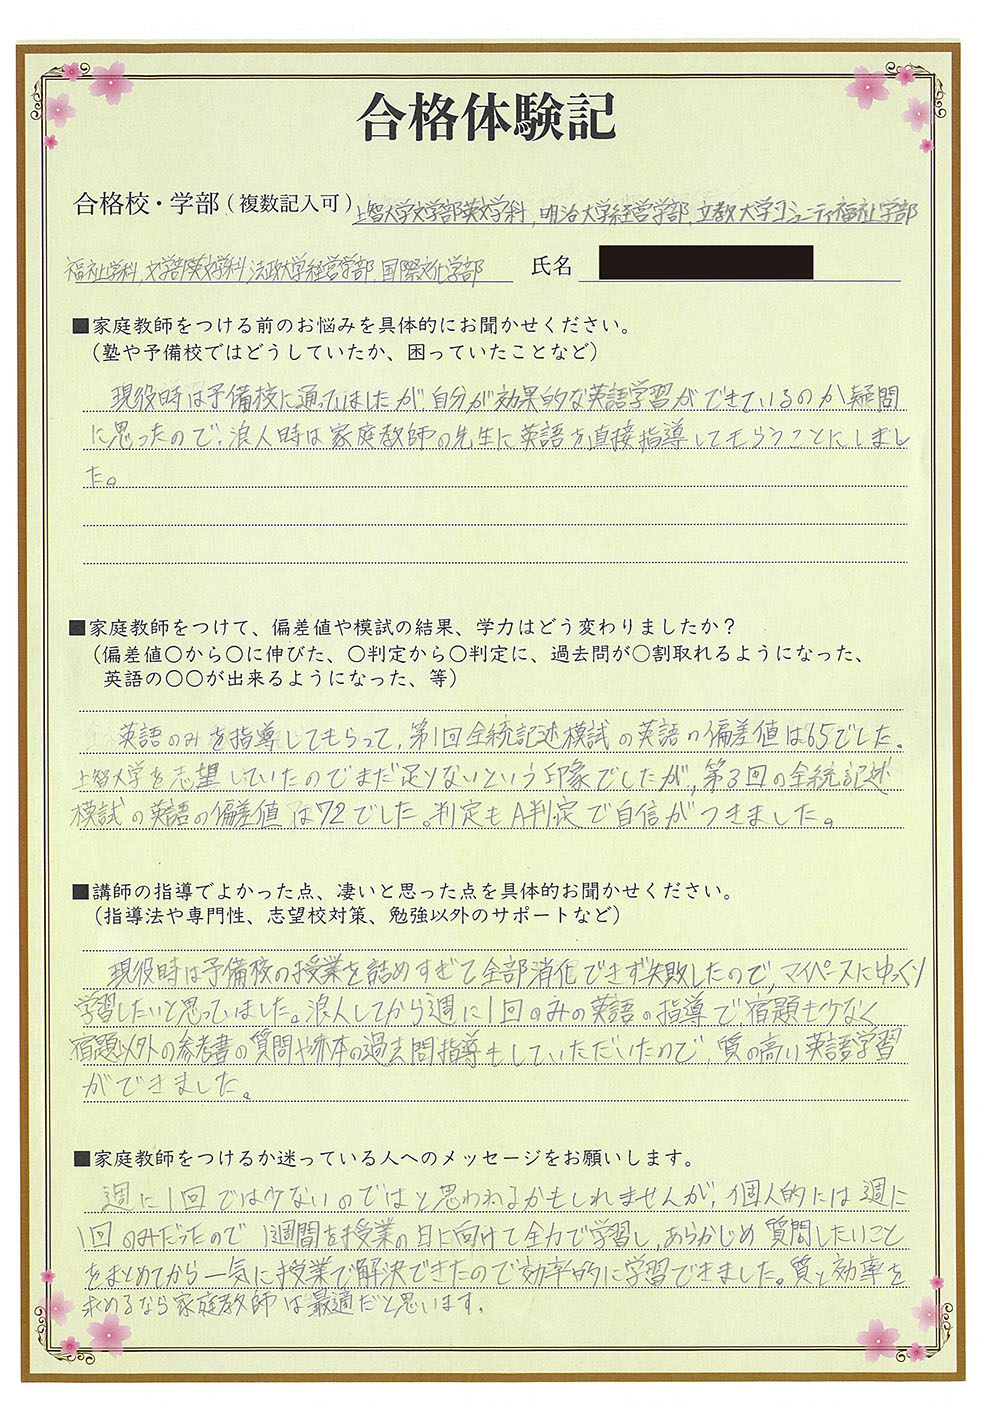 合格体験記
合格校・学部(複数記入可)上智大学文学部英文学科,明治大学経営学部,立教大学コミュニティ福祉学部
福祉学科,文学部英文学科,法政大学経営学部,国際文化学部 氏名
■家庭教師をつける前のお悩みを具体的にお聞かせください。
(塾や予備校ではどうしていたか、困っていたことなど)
現役時は予備校に通っていましたが,自分が効果的な英語学習ができているのか疑問
に思ったので,浪人時は家庭教師の先生に英語を直接指導してもらうことにしまし
た。
■家庭教師をつけて、偏差値や模試の結果、学力はどう変わりましたか?
(偏差値〇から〇に伸びた、〇判定から〇判定に、過去問が〇割取れるようになった、
英語の〇〇が出来るようになった、等)
英語のみを指導してもらって,第1回全統記述模試の英語の偏差値は65でした。
上智大学を志望していたのでまだ足りないという印象でしたが,第3回の全統記述
模試の英語の偏差値は72でした。判定もA判定で自信がつきました。
■講師の指導でよかった点、凄いと思った点を具体的お聞かせください。
(指導法や専門性、志望校対策、勉強以外のサポートなど)
現役時は予備校の授業を詰めすぎて全部消化できず失敗したので,マイペースにゆっくり
学習したいと思っていました。浪人してから週に1回のみの英語の指導で宿題も少なく
宿題以外の参考書の質問や赤本の過去問指導もしていただいたので,質の高い英語学習
ができました。
■家庭教師をつけるか迷っている人へのメッセージをお願いします。
週に1回では少ないのではと思われるかもしれませんが,個人的には週に
1回のみだったので1週間を授業の日に向けて全力で学習し,あらかじめ質問したいこと
をまとめてから一気に授業で解決できたので効率的に学習できました。質と効率を
求めるなら家庭教師は最適だと思います。